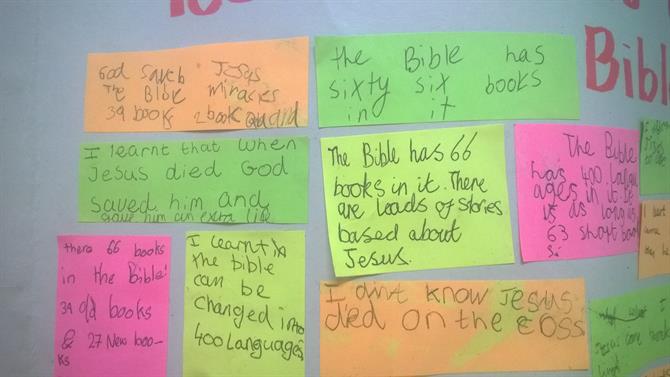 Bibl
God saved Jesus
The Bible miracles
39 books 2 book
the Bible has
sixty six books
in it
I learnt that when
Jesus died God
saved him and
gave him an extra life
The Bible has 66
books in it. There
are loads of stories
based about
Jesus.
The Bible
has 400 langu
ages in it. It
is as long as
63 short boo
there 66 books
in the Bible!
39 old books
& 27 New boo-
ks
I learnt
the bible
can be
changed into
400 Languages
I dint know Jesus
died on the coss
Jesus